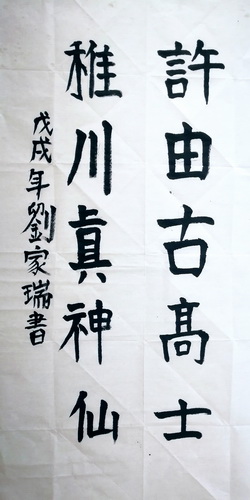 許由古高士
稚川真神仙
戊戌年劉家瑞書